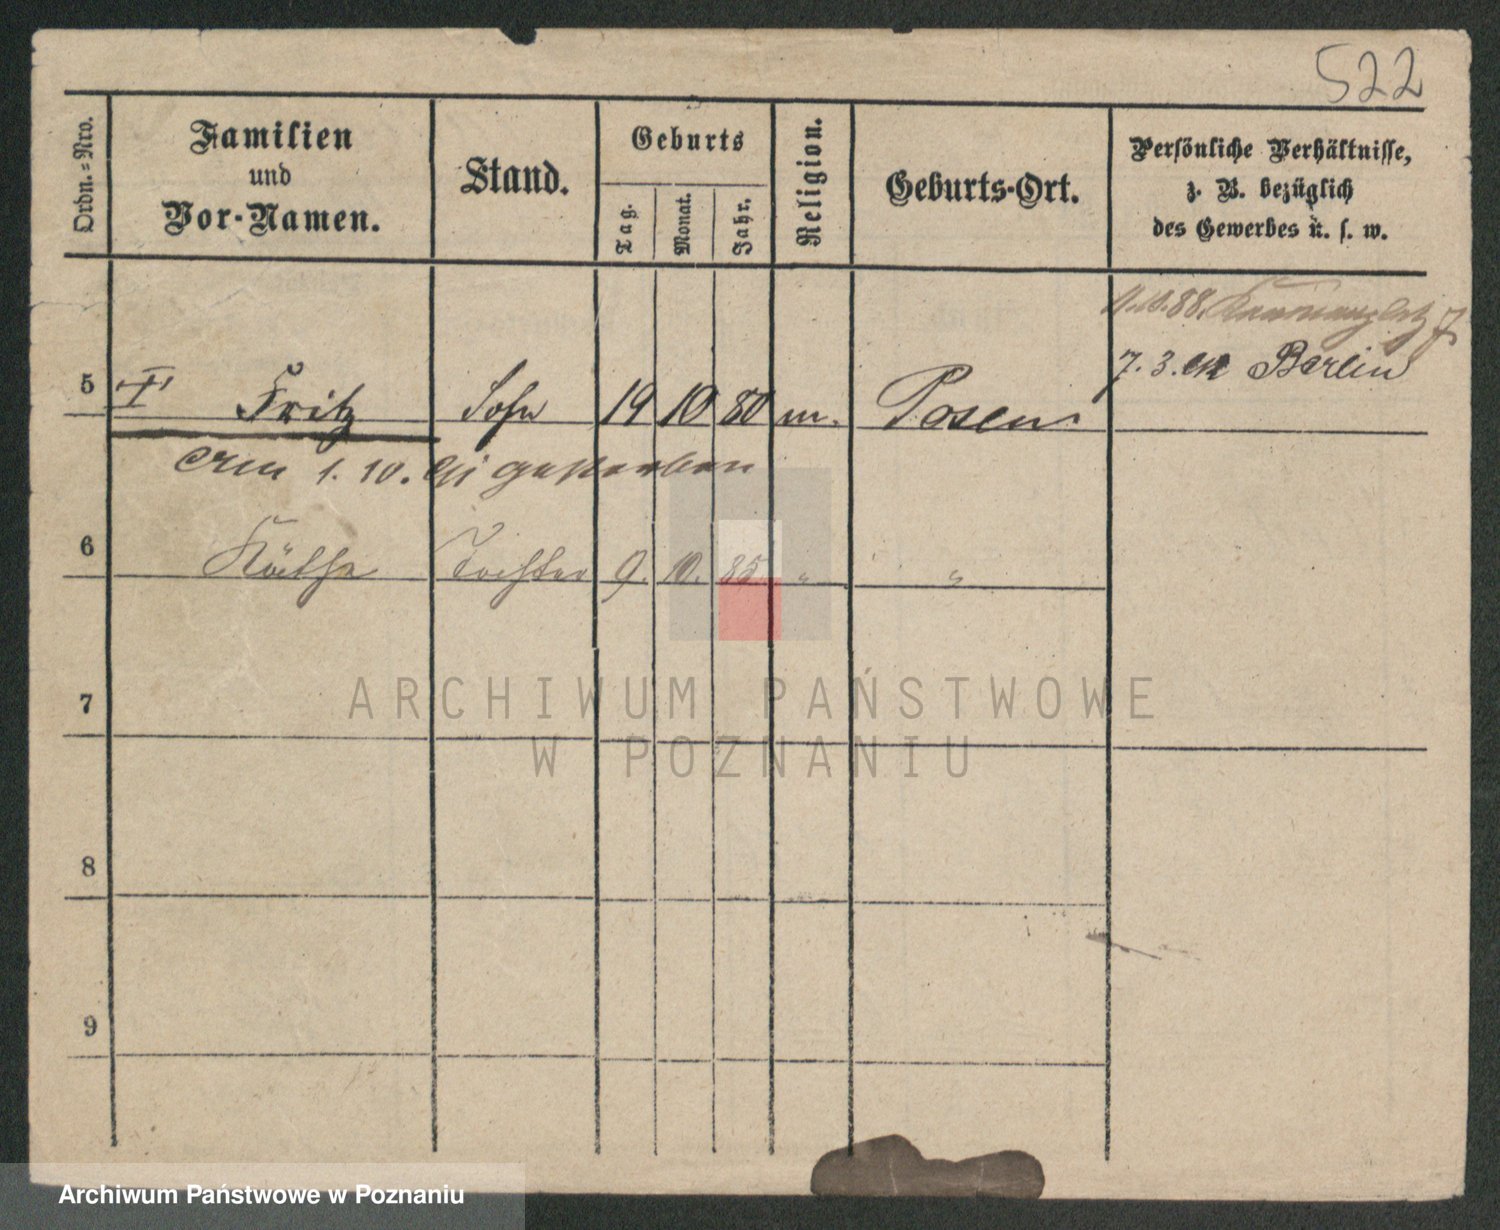 522
Ordn.=Nro.
Familien
und
Vor-Namen.
Stand.
Geburts
Tag.
Monat.
Jahr.
Religion.
Geburts-Ort.
Persönliche Verhältnisse,
z. B. bezüglich
des Gewerbes u. s. w.
11.10.88.
7. 3. Berlin
5 Fritz Sohn 19 10 80 m. Posen
1. 10. gestorben
6 Käthe Tochter 9. 10. 85 " "
7
8
9
ARCHIWUM PAŃSTWOWE
W POZNANIU
Archiwum Państwowe w Poznaniu